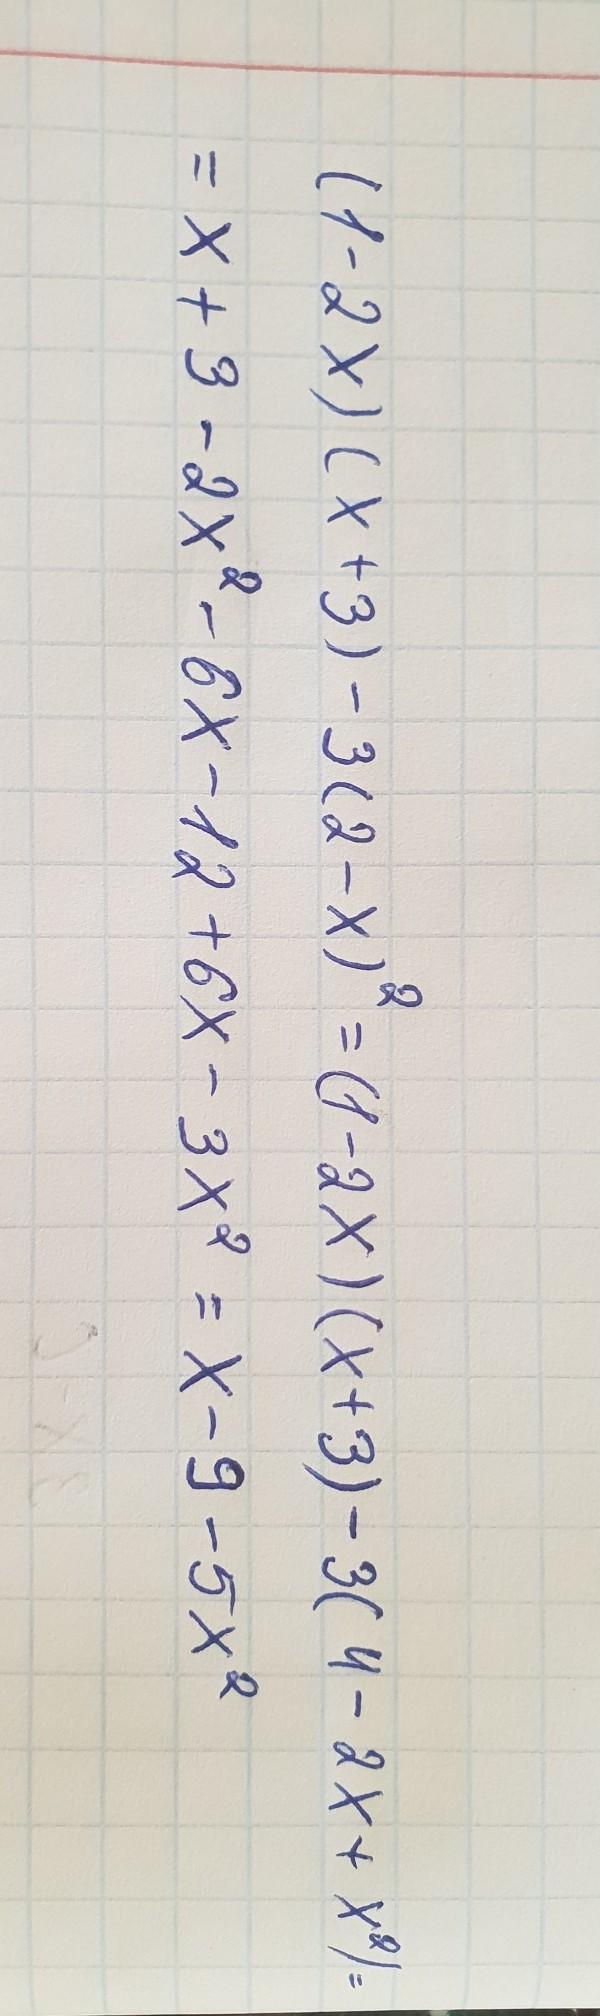 (1-2x)(x+3)-3(2-x)²=(1-2x)(x+3)-3(4-2x+x²)=
=x+3-2x²-6x-12+6x-3x²=x-9-5x²